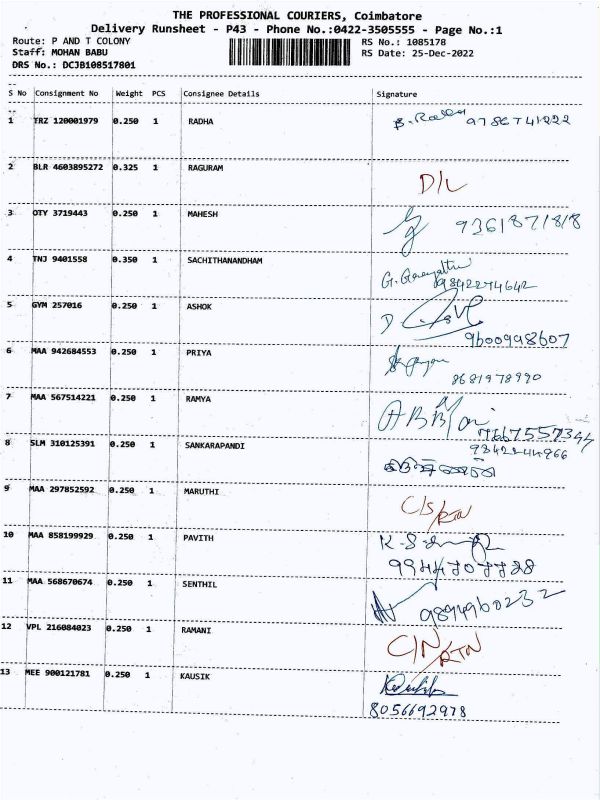 THE PROFESSIONAL COURIERS, Coimbatore
Delivery Runsheet - P43 - Phone No.:0422-3505555 - Page No.:1
Route: P AND T COLONY RS No.: 1085178
Staff: MOHAN BABU RS Date: 25-Dec-2022
DRS No.: DCJB108517801
S No Consignment No Weight PCS Consignee Details Signature
1 TRZ 120001979 0.250 1 RADHA 9786741222
2 BLR 4603895272 0.325 1 RAGURAM D/L
3 OTY 3719443 0.250 1 MAHESH 9361871818
4 TNJ 9401558 0.350 1 SACHITHANANDHAM
9842274642
5 GYM 257016 0.250 1 ASHOK
9600998607
6 MAA 942684553 0.250 1 PRIYA
8681978990
7 MAA 567514221 0.250 1 RAMYA
8 SLM 310125391 0.250 1 SANKARAPANDI 9342244966
9 MAA 297852592 0.250 1 MARUTHI C/S/RTN
10 MAA 858199929 0.250 1 PAVITH
11 MAA 568670674 0.250 1 SENTHIL 9894960232
12 VPL 216084023 0.250 1 RAMANI C/N/RTN
13 MEE 900121781 0.250 1 KAUSIK
8056692978